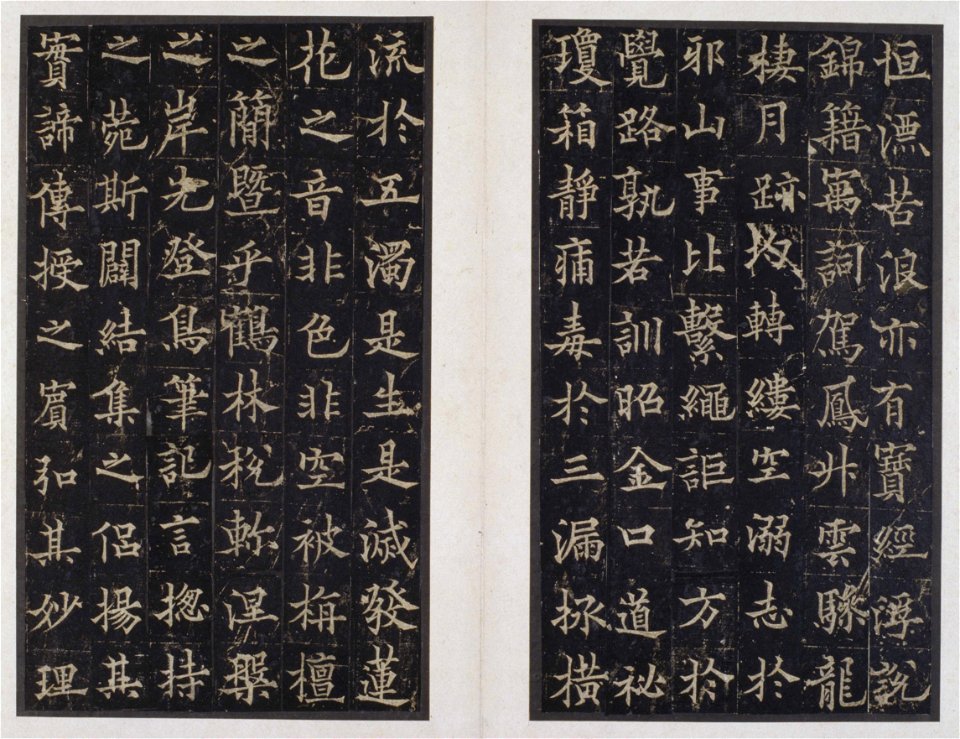 恒漂苦浪亦有寶經浮說
錦籍萬詞駕鳳升雲驂龍
棲月跡均轉縷空溺志於
邪山事比繫繩詎知方於
覺路孰若訓昭金口道祕
瓊箱靜痡毒於三漏拯橫
流於五濁是生是滅發蓮
花之音非色非空被栴檀
之簡暨乎鶴林稅軫涅槃
之岸先登鳥筆記言揔持
之菀斯闢結集之侶揚其
實諦傳授之賓弘其妙理